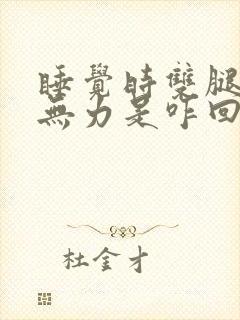 睡覺時雙腿
無力是咋回
杜金才